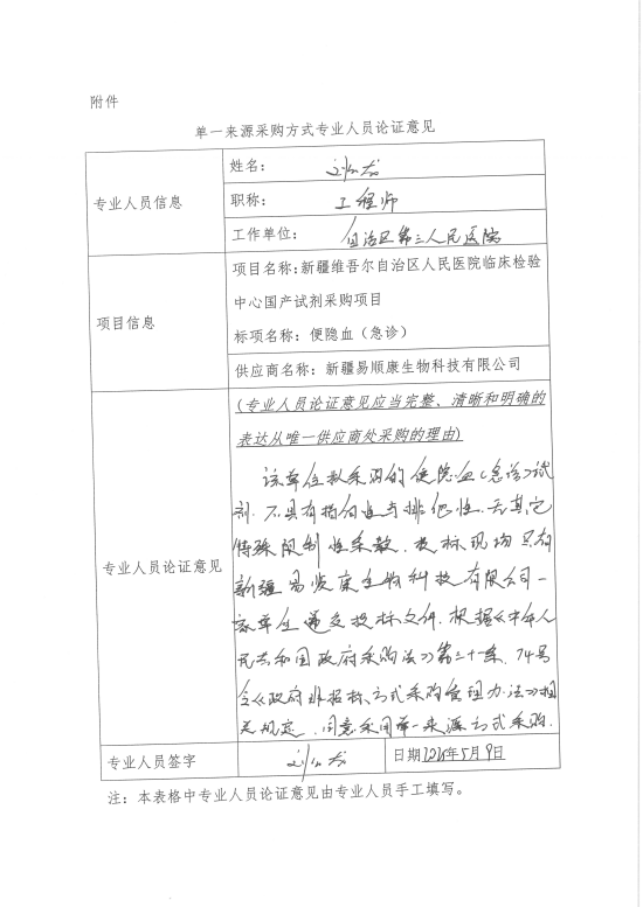 附件
单一来源采购方式专业人员论证意见
专业人员信息
姓名：
职称： 工程师
工作单位： 自治区第三人民医院
项目信息
项目名称：新疆维吾尔自治区人民医院临床检验
中心国产试剂采购项目
标项名称：便隐血（急诊）
供应商名称：新疆易顺康生物科技有限公司
专业人员论证意见
(专业人员论证意见应当完整、清晰和明确的
表达从唯一供应商处采购的理由)
该单位拟采购的便隐血(急诊)试
剂.不具有指向性与排他性.无其它
特殊限制性条款.投标现场只有
新疆易顺康生物科技有限公司一
家单位递交投标文件.根据《中华人
民共和国政府采购法》第三十一条,74号
令《政府非招标方式采购管理办法》相
关规定,同意采用单一来源方式采购.
专业人员签字
日期 年5月9日
注：本表格中专业人员论证意见由专业人员手工填写。